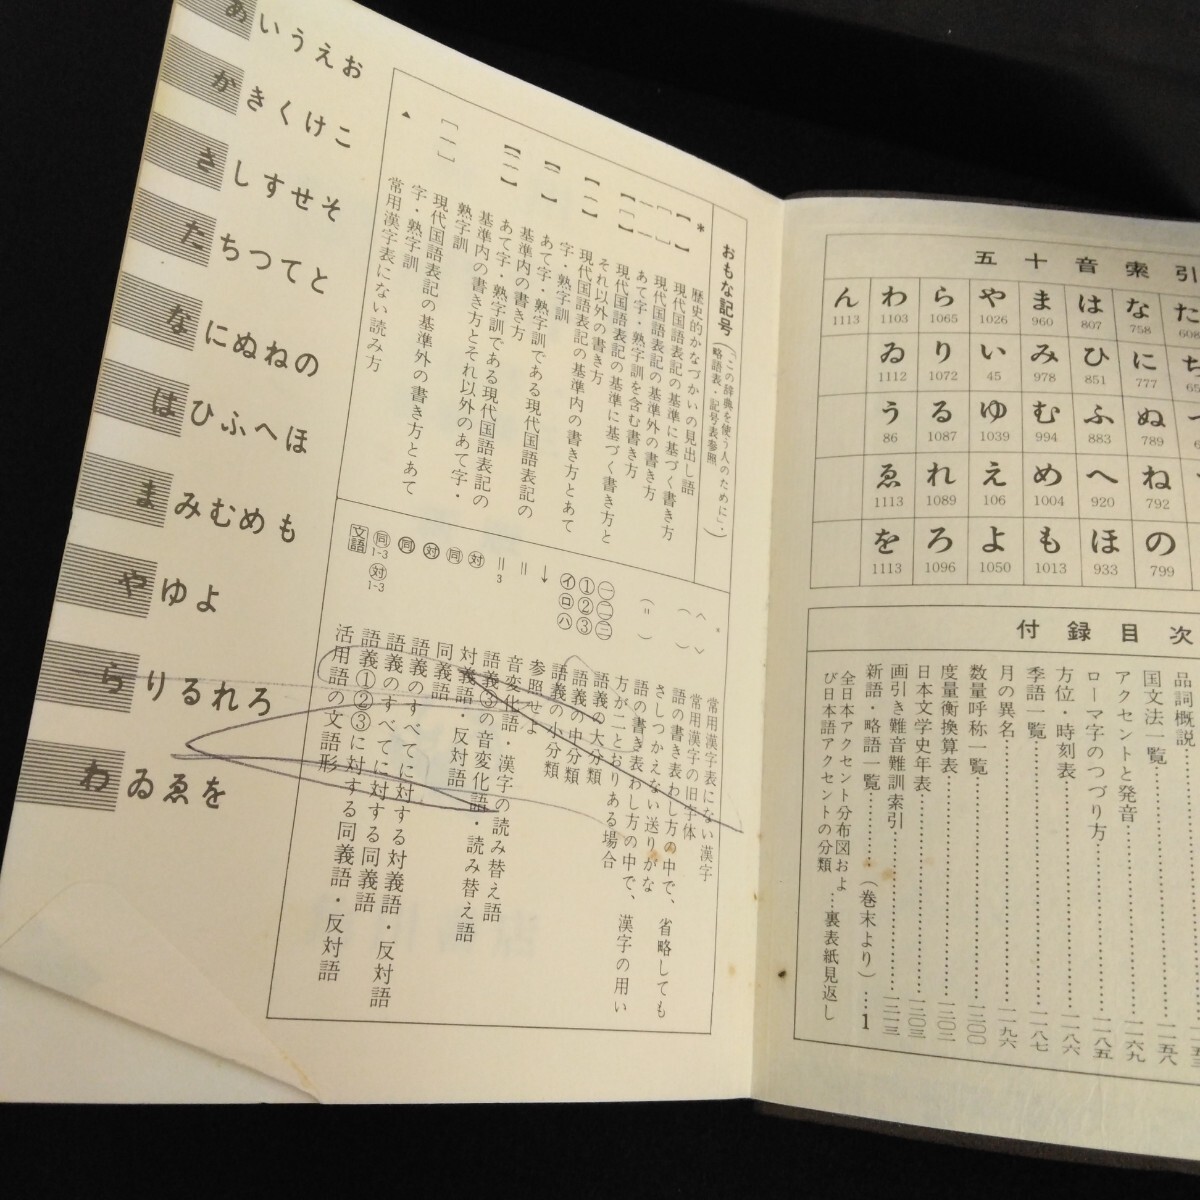 あいうえお
かきくけこ
さしすせそ
たちつてと
なにぬねの
はひふへほ
まみむめも
やゆよ
らりるれろ
わゐゑを
おもな記号(「この辞典を使う人のために」・
略語表・記号表参照)
* 歴史的かなづかいの見出し語
【 】 現代国語表記の基準に基づく書き方
現代国語表記の基準外の書き方
あて字・熟字訓を含む書き方
現代国語表記の基準に基づく書き方と
それ以外の書き方
現代国語表記の基準内の書き方とあて
字・熟字訓
あて字・熟字訓である現代国語表記の
基準内の書き方
あて字・熟字訓である現代国語表記の
基準内の書き方とそれ以外のあて字・
熟字訓
現代国語表記の基準外の書き方とあて
字・熟字訓
▲ 常用漢字表にない読み方
常用漢字表にない漢字
常用漢字の旧字体
( ) 語の書き表わし方の中で、省略しても
さしつかえない送りがな
(=) 語の書き表わし方の中で、漢字の用い
方が二とおりある場合
㊀㊁㊂ 語義の大分類
①②③ 語義の中分類
㋑㋺㋩ 語義の小分類
↓ 参照せよ
= 音変化語・漢字の読み替え語
=3 語義③の音変化語・読み替え語
対 対義語・反対語
同 同義語
対 語義のすべてに対する対義語・反対語
同 語義のすべてに対する同義語
同1-3 対1-3 語義①②③に対する同義語・反対語
文語 活用語の文語形
五十音索引
ん わ ら や ま は な た
1113 1103 1065 1026 960 807 758 608
ゐ り い み ひ に ち
1112 1072 45 978 851 777
う る ゆ む ふ ぬ
86 1087 1039 994 883 789
ゑ れ え め へ ね
1113 1089 106 1004 920 792
を ろ よ も ほ の
1113 1096 1050 1013 933 799
付録目次
品詞概説
国文法一覧……一一五八
アクセントと発音……一一六九
ローマ字のつづり方……一一八五
方位・時刻表……一一八六
季語一覧……一一八七
月の異名……一一九六
数量呼称一覧……一二〇〇
度量衡換算表……一二〇二
日本文学史年表……一二〇三
画引き難音難訓索引……一二一三
新語・略語一覧……(巻末より)…1
全日本アクセント分布図およ
び日本語アクセントの分類…裏表紙見返し